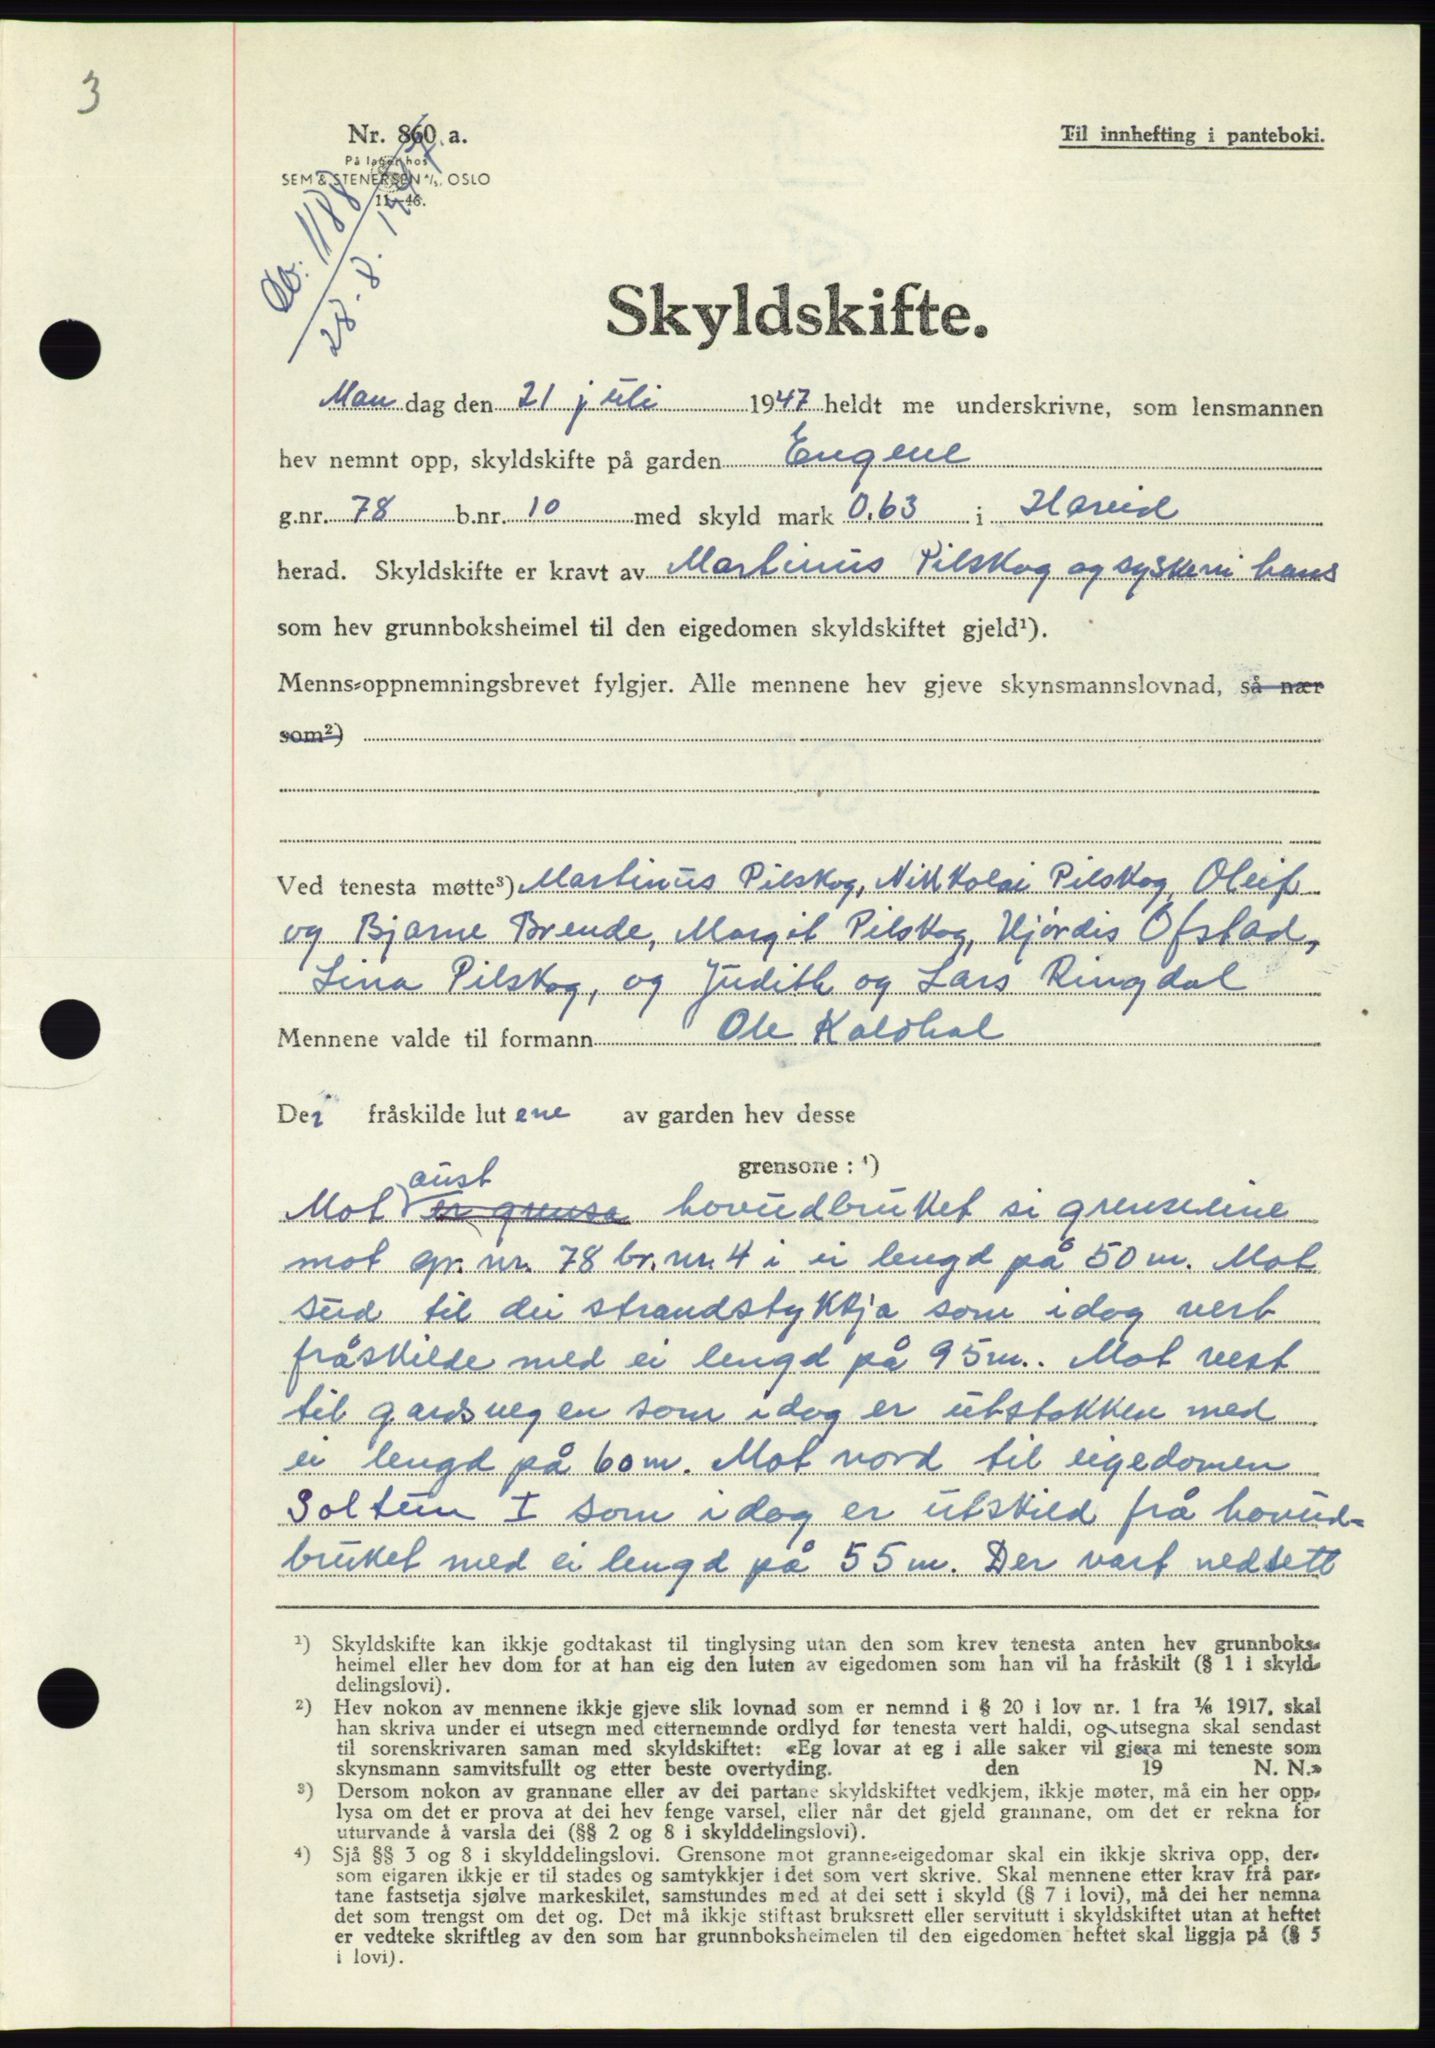 3
Nr. 860 a.
På lager hos
SEM & STENERSEN A/S, OSLO
11.-46.
Til innhefting i panteboki.
1188
28.8.1947
Skyldskifte.
Man dag den 21 juli 1947 heldt me underskrivne, som lensmannen
hev nemnt opp, skyldskifte på garden Engene
g.nr. 78 b.nr. 10 med skyld mark 0.63 i Hareid
herad. Skyldskifte er kravt av Martinus Pilskog og syskeni hans
som hev grunnboksheimel til den eigedomen skyldskiftet gjeld¹).
Menns-oppnemningsbrevet fylgjer. Alle mennene hev gjeve skynsmannslovnad, så nær
som²)
Ved tenesta møtte³) Martinus Pilskog, Nikkolai Pilskog, Oleif
og Bjarne Brende, Margit Pilskog, Hjördis Ofstad,
Lina Pilskog, og Judith og Lars Ringdal
Mennene valde til formann Ole Kaldhol
Dei fråskilde lutene av garden hev desse
grensone : ⁴)
aust
Mot er grensa hovudbruket si grenseline
mot gr. nr. 78 br. nr. 4 i ei lengd på 50 m. Mot
sud til dei strandstykkja som idag vert
fråskilde med ei lengd på 95 m.. Mot vest
til gardsvegen som idag er utstokken med
ei lengd på 60 m. Mot nord til eigedomen
Soltun I som idag er utskild frå hovud=
bruket med ei lengd på 55 m. Der vart nedsett
¹) Skyldskifte kan ikkje godtakast til tinglysing utan den som krev tenesta anten hev grunnboks-
heimel eller hev dom for at han eig den luten av eigedomen som han vil ha fråskilt (§ 1 i skyld-
delingslovi).
²) Hev nokon av mennene ikkje gjeve slik lovnad som er nemnd i § 20 i lov nr. 1 fra 1/6 1917, skal
han skriva under ei utsegn med etternemnde ordlyd før tenesta vert haldi, og utsegna skal sendast
til sorenskrivaren saman med skyldskiftet: «Eg lovar at eg i alle saker vil gjera mi teneste som
skynsmann samvitsfullt og etter beste overtyding. den 19 N. N.»
³) Dersom nokon av grannane eller av dei partane skyldskiftet vedkjem, ikkje møter, må ein her opp-
lysa om det er prova at dei hev fenge varsel, eller når det gjeld grannane, om det er rekna for
uturvande å varsla dei (§§ 2 og 8 i skylddelingslovi).
⁴) Sjå §§ 3 og 8 i skylddelingslovi. Grensone mot granne-eigedomar skal ein ikkje skriva opp, der-
som eigaren ikkje er til stades og samtykkjer i det som vert skrive. Skal mennene etter krav frå par-
tane fastsetja sjølve markeskilet, samstundes med at dei sett i skyld (§ 7 i lovi), må dei her nemna
det som trengst om det og. Det må ikkje stiftast bruksrett eller servitutt i skyldskiftet utan at heftet
er vedteke skriftleg av den som har grunnboksheimelen til den eigedomen heftet skal liggja på (§ 5
i lovi).